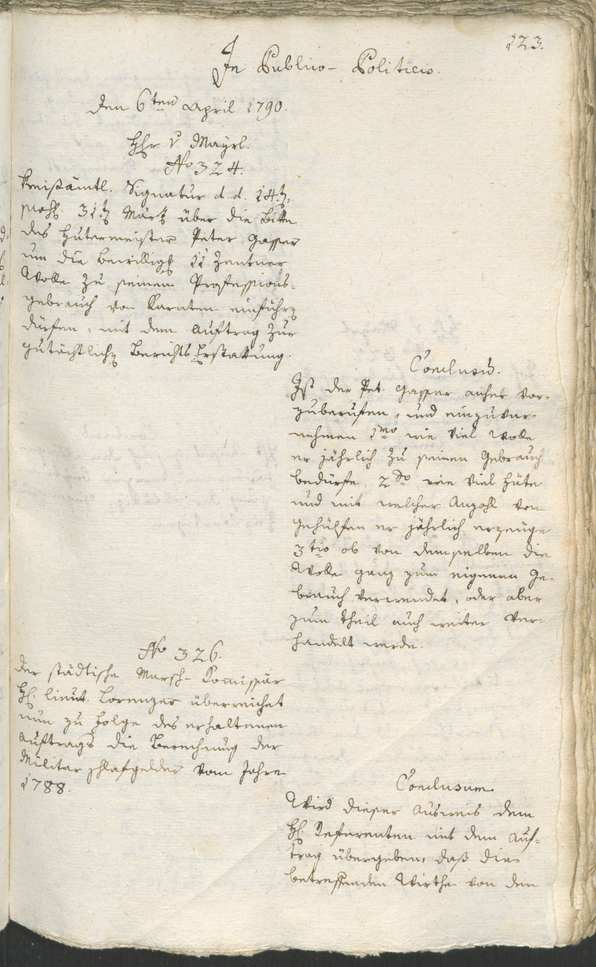 123.
In Publico-Politicis.
den 6ten April 1790.
Hr v Mayrl.
No 324.
Kreisämtl. Signatur d. d. 14t,
31t März über die Bitte
des Hutermeister Peter Gasser
um die Bewillig 11 Zentner
Wolle zu seinem Professions-
gebrauch von Karnten einführen
dürfen, mit dem Auftrag zur
gutächtlichen Berichts Erstattung.
Conclusū.
Ist der Pet. Gasser anher vor-
zuberufen, und einzuver-
nehmen 1mo wie viel Wolle
er jährlich zu seinen Gebrauch
bedürfe, 2do wie viel Hüte
und mit welcher Anzahl von
Gehülfen er jährlich erzeuge
3tio ob von demselben die
Wolle ganz zum eigenen Ge-
brauch verwendet, oder aber
zum theil auch weiter ver-
handelt werde.
No 326.
Der städtische Marsch-Comissär
H. lieut. Lorenzer überreichet
nun zu folge des erhaltenen
Auftrags die Berechnung der
Militar schlafgelder vom Jahre
1788.
Conclusum
Wird dieser Ausweis dem
H. Referenten mit dem Auf-
trag übergeben, daß die
betreffenden Wirthe von dem